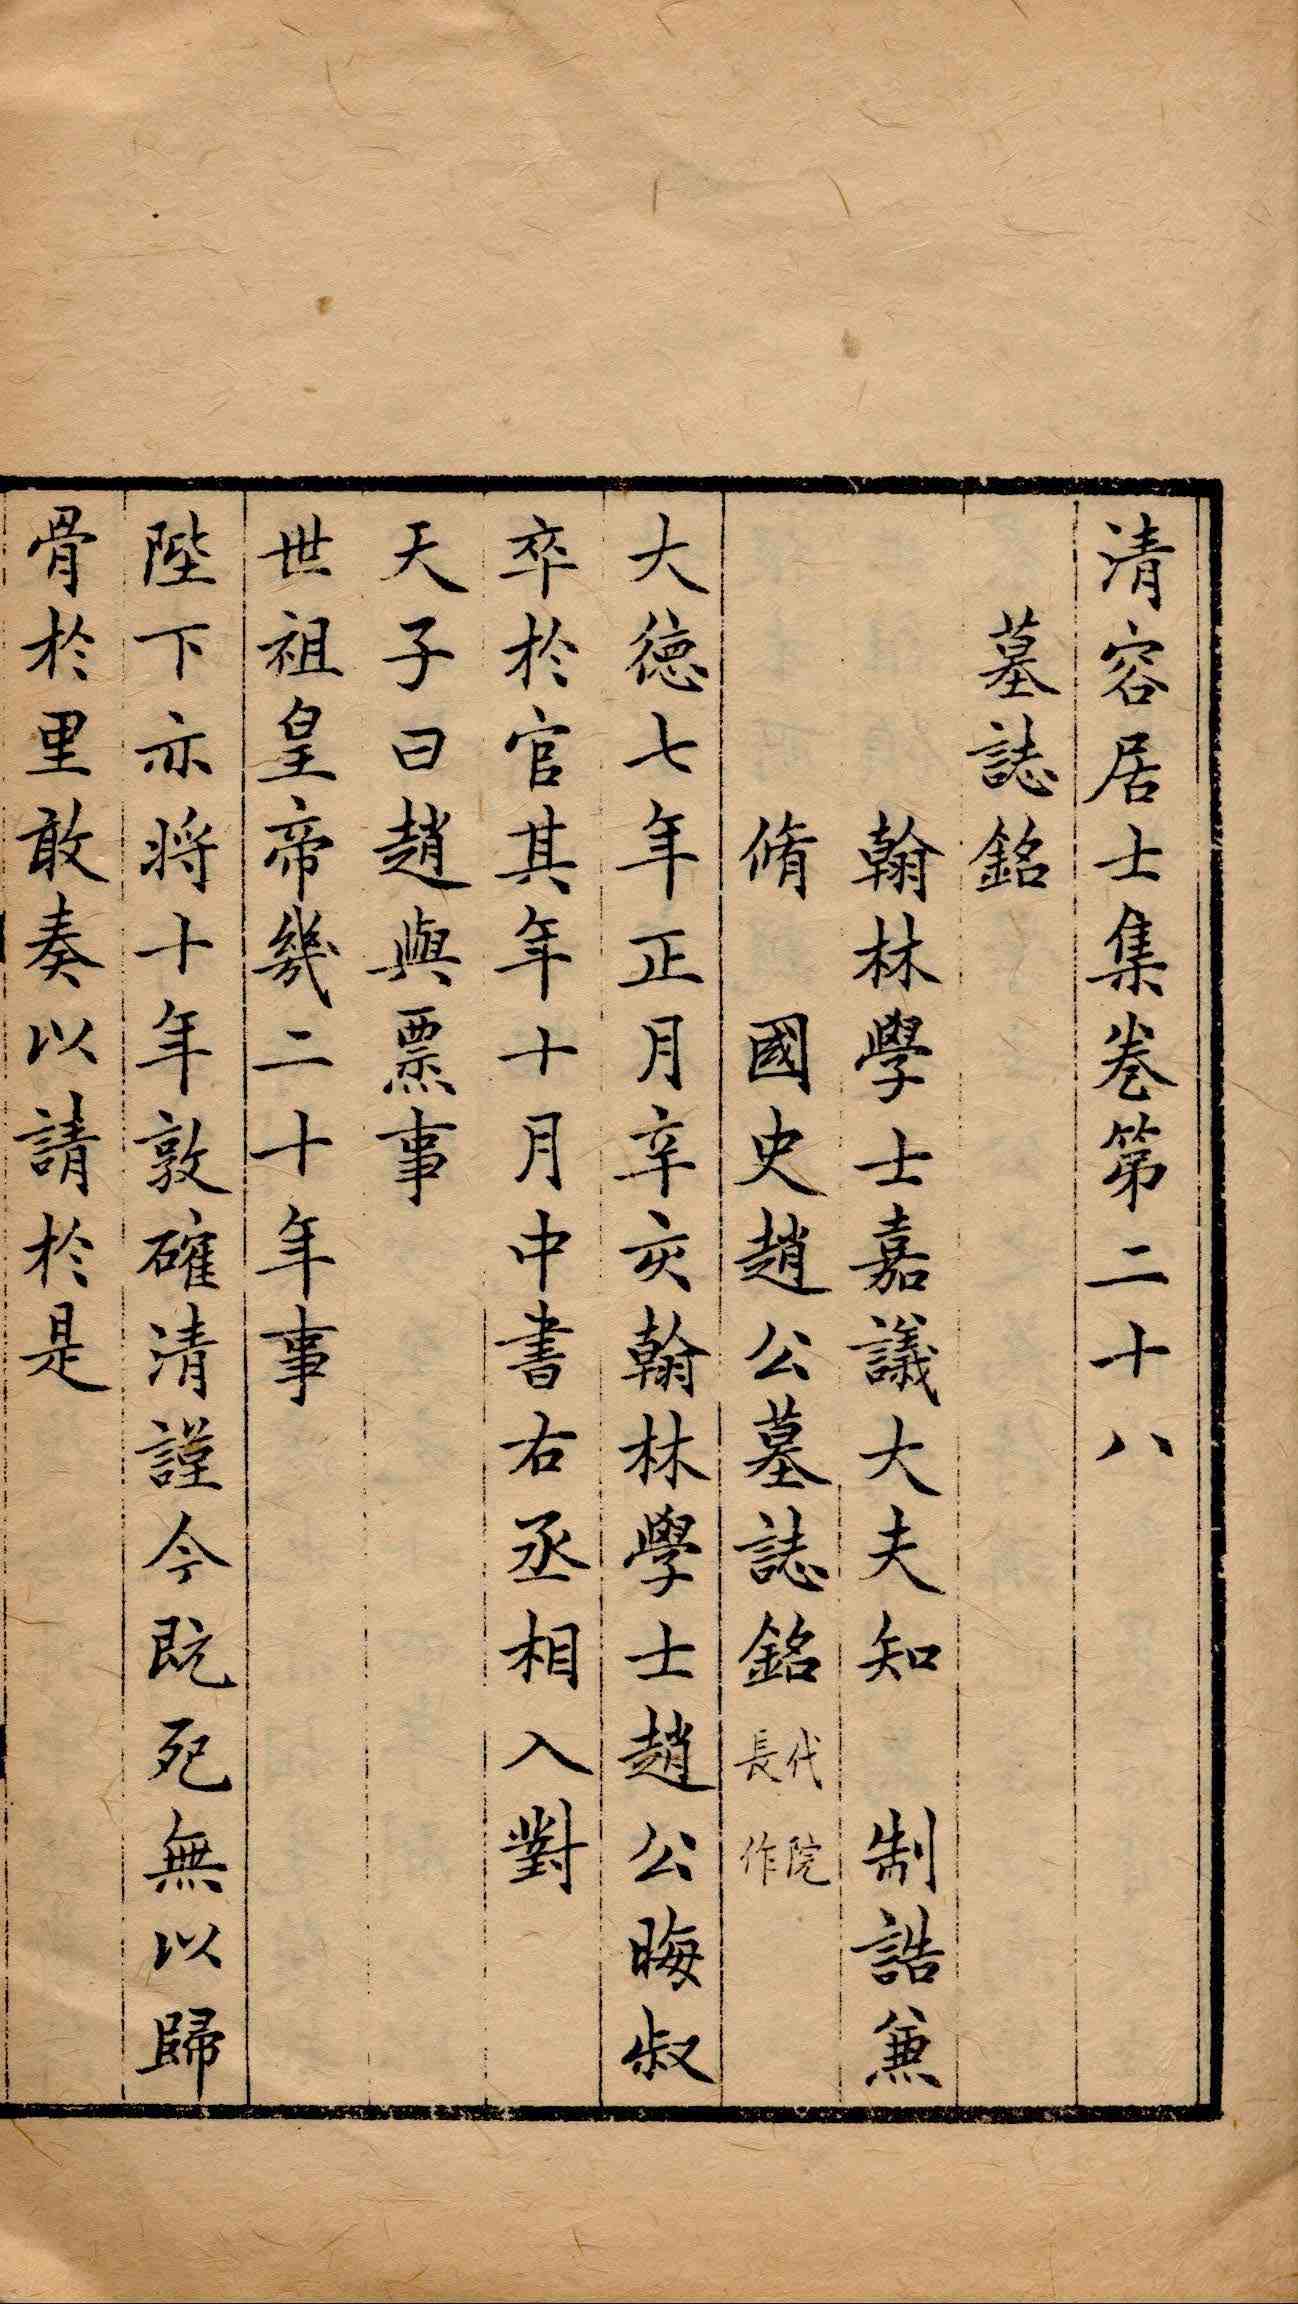 清容居士集卷第二十八
墓誌銘
翰林學士嘉議大夫知 制誥兼
脩 國史趙公墓誌銘代院長作
大德七年正月辛亥翰林學士趙公晦叔
卒於官其年十月中書右丞相入對
天子曰趙與票事
世祖皇帝幾二十年事
陛下亦將十年敦確清謹今既死無以歸
骨於里敢奏以請於是